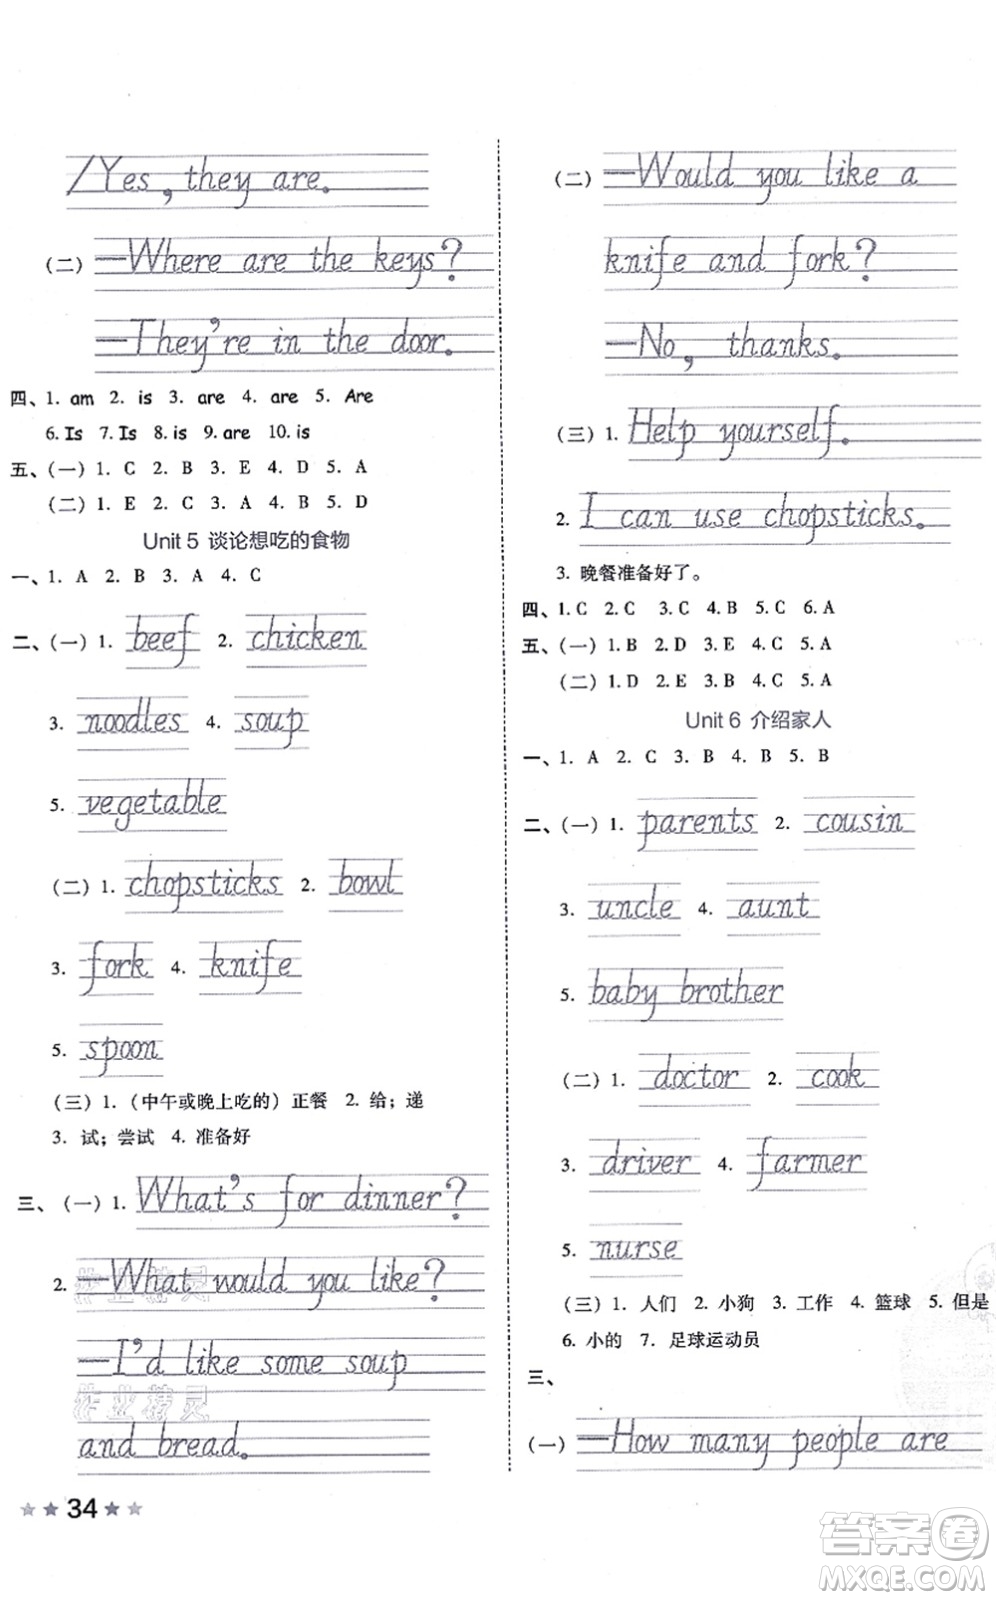 /Yes, they are.
(二) —Where are the keys?
—They're in the door.
四、1. am 2. is 3. are 4. are 5. Are
6. Is 7. Is 8. is 9. are 10. is
五、(一) 1. C 2. B 3. E 4. D 5. A
(二) 1. E 2. C 3. A 4. B 5. D
Unit 5 谈论想吃的食物
一、1. A 2. B 3. A 4. C
二、(一) 1. beef 2. chicken
3. noodles 4. soup
5. vegetable
(二) 1. chopsticks 2. bowl
3. fork 4. knife
5. spoon
(三) 1. (中午或晚上吃的) 正餐 2. 给; 递
3. 试; 尝试 4. 准备好
三、(一) 1. What's for dinner?
2. —What would you like?
—I'd like some soup
and bread.
34
(二) —Would you like a
knife and fork?
—No, thanks.
(三) 1. Help yourself.
2. I can use chopsticks.
3. 晚餐准备好了。
四、1. C 2. C 3. C 4. B 5. C 6. A
五、(一) 1. B 2. D 3. E 4. C 5. A
(二) 1. D 2. E 3. B 4. C 5. A
Unit 6 介绍家人
一、1. A 2. C 3. B 4. B 5. B
二、(一) 1. parents 2. cousin
3. uncle 4. aunt
5. baby brother
(二) 1. doctor 2. cook
3. driver 4. farmer
5. nurse
(三) 1. 人们 2. 小狗 3. 工作 4. 篮球 5. 但是
6. 小的 7. 足球运动员
三、
(一) —How many people are
作业精灵
作业精灵
答案卷
MXQE.COM